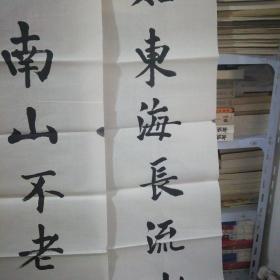 如東海長流水
南山不老